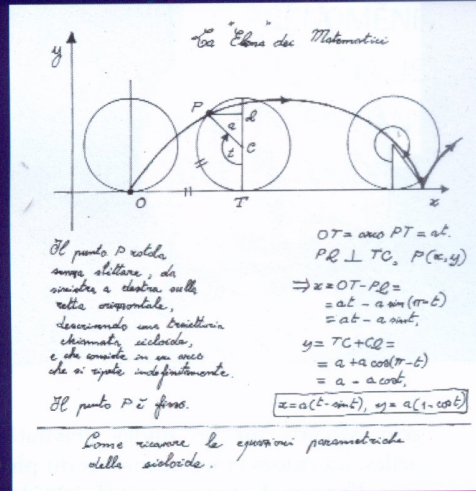 La "Elena" dei Matematici
y
P
l
a
C
t
O
T
x
Il punto P rotola
senza slittare, da
sinistra a destra sulla
retta orizzontale,
descrivendo una traiettoria
chiamata cicloide,
e che consiste in un arco
che si ripete indefinitamente.
Il punto P è fisso.
OT = arco PT = at.
Pl ⊥ TC, P(x,y)
⇒ x = OT - Pl =
= at - a sin(π-t)
= at - a sint,
y = TC + Cl =
= a + a cos(π-t)
= a - a cost,
x = a(t - sint), y = a(1 - cost)
Come ricavare le equazioni parametriche
della cicloide.